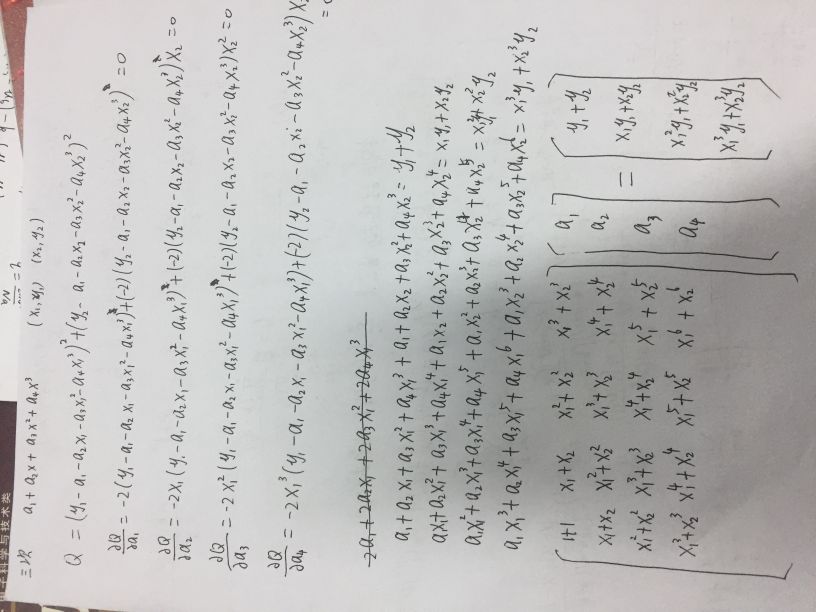 电子科学与技术类
三次 a₁ + a₂x + a₃x² + a₄x³ (x₁,y₁) (x₂,y₂)
Q = (y₁-a₁-a₂x₁-a₃x₁²-a₄x₁³)²+(y₂-a₁-a₂x₂-a₃x₂²-a₄x₂³)²
∂Q/∂a₁ = -2(y₁-a₁-a₂x₁-a₃x₁²-a₄x₁³)+(-2)(y₂-a₁-a₂x₂-a₃x₂²-a₄x₂³) =0
∂Q/∂a₂ = -2x₁(y₁-a₁-a₂x₁-a₃x₁²-a₄x₁³)+(-2)(y₂-a₁-a₂x₂-a₃x₂²-a₄x₂³)x₂ =0
∂Q/∂a₃ = -2x₁²(y₁-a₁-a₂x₁-a₃x₁²-a₄x₁³)+(-2)(y₂-a₁-a₂x₂-a₃x₂²-a₄x₂³)x₂² =0
∂Q/∂a₄ = -2x₁³(y₁-a₁-a₂x₁-a₃x₁²-a₄x₁³)+(-2)(y₂-a₁-a₂x₂-a₃x₂²-a₄x₂³)x₂
=0
2a₁+2a₂x₁+2a₃x₁²+2a₄x₁³
a₁+a₂x₁+a₃x₁²+a₄x₁³+a₁+a₂x₂+a₃x₂²+a₄x₂³= y₁+y₂
ax₁+a₂x₁²+a₃x₁³+a₄x₁⁴+a₁x₂+a₂x₂²+a₃x₂³+a₄x₂⁴= x₁y₁+x₂y₂
a₁x₁²+a₂x₁³+a₃x₁⁴+a₄x₁⁵+a₁x₂²+a₂x₂³+a₃x₂⁴+a₄x₂⁵= x₁²y₁+x₂²y₂
a₁x₁³+a₂x₁⁴+a₃x₁⁵+a₄x₁⁶+a₁x₂³+a₂x₂⁴+a₃x₂⁵+a₄x₂⁶= x₁³y₁+x₂³y₂
1+1 x₁+x₂ x₁²+x₂² x₁³+x₂³ a₁ y₁+y₂
x₁+x₂ x₁²+x₂² x₁³+x₂³ x₁⁴+x₂⁴ a₂ = x₁y₁+x₂y₂
x₁²+x₂² x₁³+x₂³ x₁⁴+x₂⁴ x₁⁵+x₂⁵ a₃ x₁²y₁+x₂²y₂
x₁³+x₂³ x₁⁴+x₂⁴ x₁⁵+x₂⁵ x₁⁶+x₂⁶ a₄ x₁³y₁+x₂³y₂